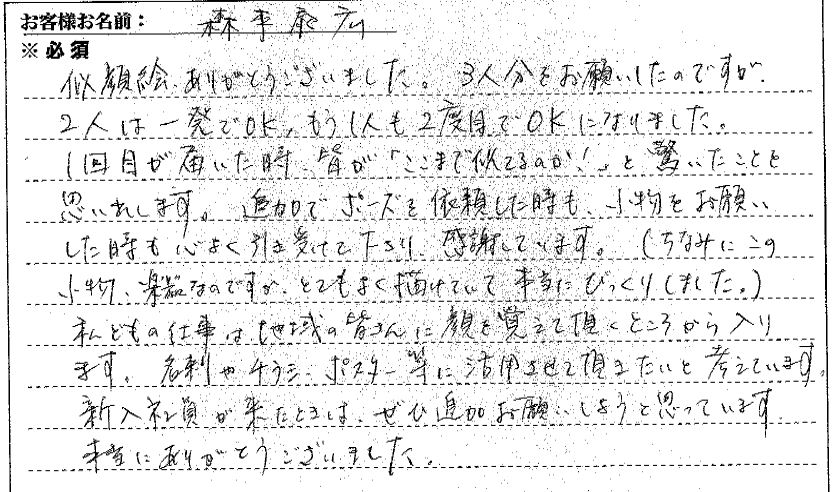 お客様お名前： 森平康広
※必須
似顔絵、ありがとうございました。 3人分をお願いしたのですが、
2人は一発でOK、もう1人も2度目でOKになりました。
1回目が届いた時、皆が「ここまで似てるのか！」と驚いたことを
思い出します。 追加でポーズを依頼した時も、小物をお願い
した時も心よく引き受けて下さり、感謝しています。（ちなみにこの
小物、楽器なのですが、とてもよく描けていて本当にびっくりしました。）
私どもの仕事は地域の皆さんに顔を覚えて頂くところから入り
ます。 名刺やチラシ、ポスター等に活用させて頂きたいと考えています。
新入社員が来たときは、ぜひ追加お願いしようと思っています。
本当にありがとうございました。